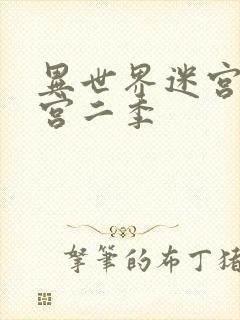 異世界迷宮
宮二季
拏筆的布丁猪